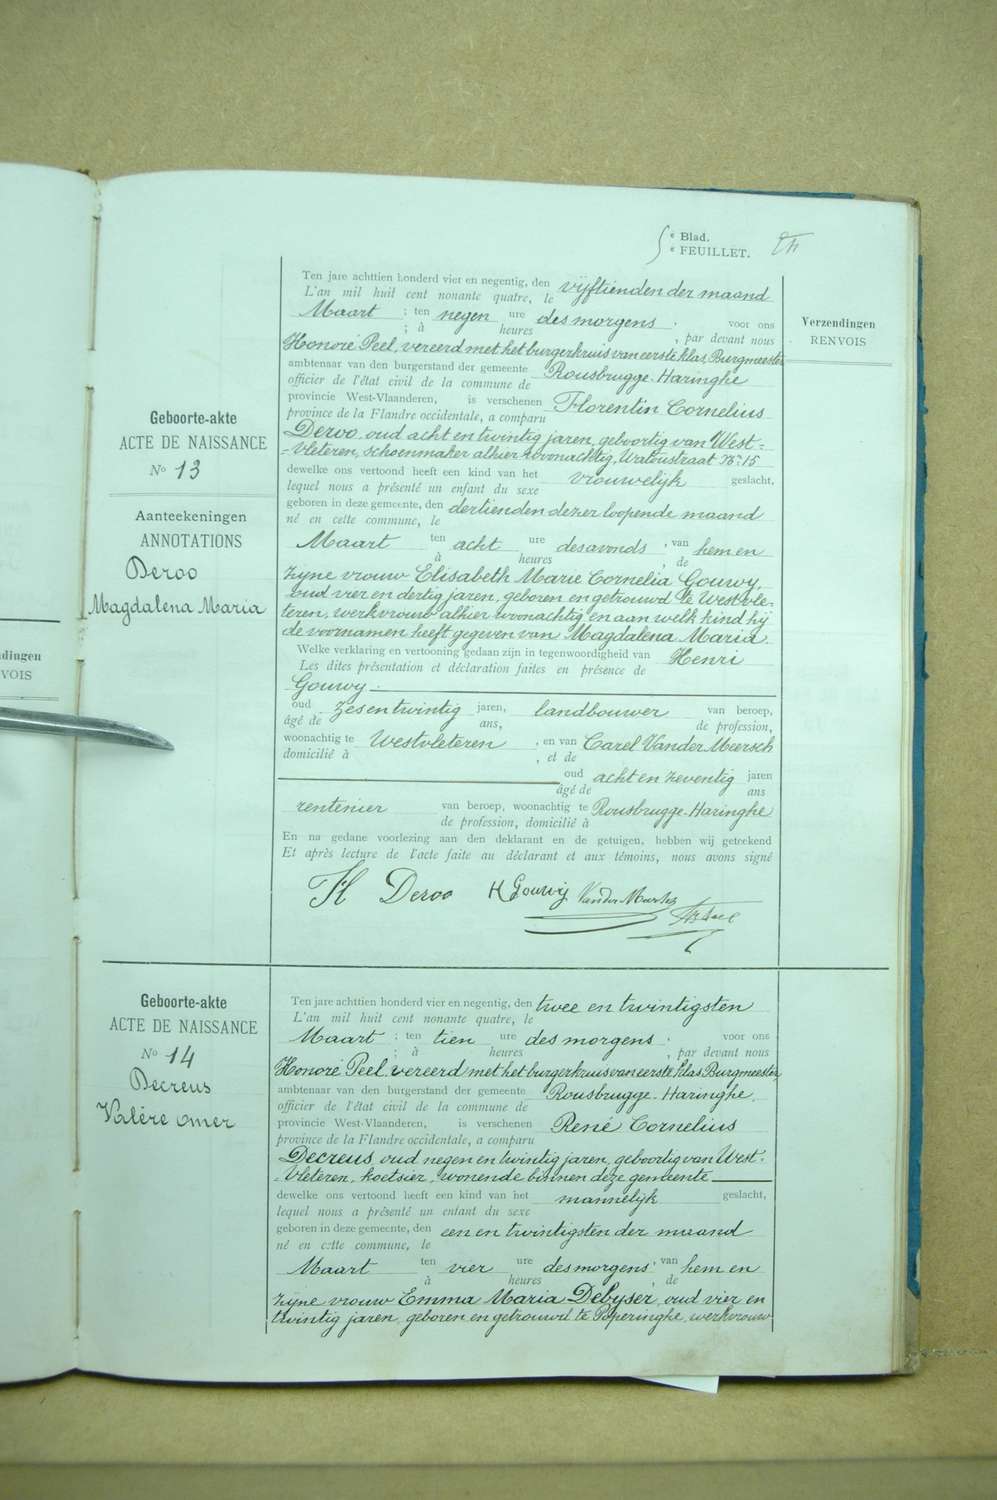 5e Blad.
e FEUILLET.
Verzendingen
RENVOIS
Geboorte-akte
ACTE DE NAISSANCE
No 13
Aanteekeningen
ANNOTATIONS
Deroo
Magdalena Maria
Ten jare achttien honderd vier en negentig, den vijftienden der maand
L'an mil huit cent nonante quatre, le
Maart ; ten negen ure des morgens ; voor ons
; à heures , par devant nous
Honoré Peel, vereerd met het burgerkruis van eerste klas, Burgmeester
ambtenaar van den burgerstand der gemeente Rousbrugge-Haringhe
officier de l'état civil de la commune de
provincie West-Vlaanderen, is verschenen Florentin Cornelius
province de la Flandre occidentale, a comparu
Deroo, oud acht en twintig jaren, geboortig van West-
-vleteren, schoenmaker alhier woonachtig, Watoustraat No 15
dewelke ons vertoond heeft een kind van het vrouwelijk geslacht,
lequel nous a présenté un enfant du sexe
geboren in deze gemeente, den dertienden dezer loopende maand
né en cette commune, le
Maart ten acht ure des avonds ; van hem en
à heures , de
zijne vrouw Elisabeth Marie Cornelia Gouwy,
oud vier en dertig jaren, geboren en getrouwd te Westvle-
teren, werkvrouw alhier woonachtig en aan welk kind hij
de voornamen heeft gegeven van Magdalena Maria
Welke verklaring en vertooning gedaan zijn in tegenwoordigheid van Henri
Les dites présentation et déclaration faites en présence de
Gouwy
oud zes en twintig jaren, landbouwer van beroep,
âgé de ans, de profession,
woonachtig te Westvleteren , en van Carel Vander Meersch
domicilié à , et de
oud acht en zeventig jaren
âgé de ans
rentenier van beroep, woonachtig te Rousbrugge-Haringhe
de profession, domicilié à
En na gedane voorlezing aan den deklarant en de getuigen, hebben wij geteekend
Et après lecture de l'acte faite au déclarant et aux témoins, nous avons signé
Deroo H Gouwij
Geboorte-akte
ACTE DE NAISSANCE
No 14
Decreus
Valère Omer
Ten jare achttien honderd vier en negentig, den twee en twintigsten
L'an mil huit cent nonante quatre, le
Maart ; ten tien ure des morgens ; voor ons
; à heures , par devant nous
Honoré Peel, vereerd met het burgerkruis van eerste klas, Burgmeester,
ambtenaar van den burgerstand der gemeente Rousbrugge-Haringhe,
officier de l'état civil de la commune de
provincie West-Vlaanderen, is verschenen René Cornelius
province de la Flandre occidentale, a comparu
Decreus, oud negen en twintig jaren, geboortig van West-
-vleteren, koetsier, wonende binnen deze gemeente
dewelke ons vertoond heeft een kind van het mannelijk geslacht,
lequel nous a présenté un enfant du sexe
geboren in deze gemeente, den een en twintigsten der maand
né en cette commune, le
Maart ten vier ure des morgens ; van hem en
à heures , de
zijne vrouw Emma Maria Debyser, oud vier en
twintig jaren, geboren en getrouwd te Poperinghe, werkvrouw